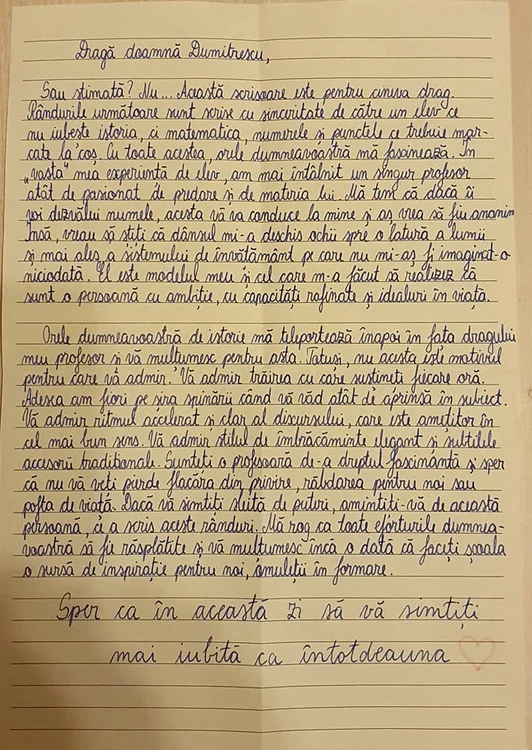 Dragă doamnă Dumitrescu,
Sau stimată? Nu... Această scrisoare este pentru cineva drag.
Rândurile următoare sunt scrise cu sinceritate de către un elev ce
nu iubește istoria, ci matematica, numerele și punctele ce trebuie mar-
cate la coș. Cu toate acestea, orele dumneavoastră mă fascinează. În
„vasta” mea experiență de elev, am mai întâlnit un singur profesor
atât de pasionat de predare și de materia lui. Mă tem că dacă îi
voi dezvălui numele, acesta vă va conduce la mine și aș vrea să fiu anonim.
Însă, vreau să știți că dânsul mi-a deschis ochii spre o latură a lumii
și mai ales a sistemului de învățământ pe care nu mi-aș fi imaginat-o
niciodată. El este modelul meu și cel care m-a făcut să realizez că
sunt o persoană cu ambiție, cu capacități rafinate și idealuri în viață.
Orele dumneavoastră de istorie mă teleportează înapoi în fața dragului
meu profesor și vă mulțumesc pentru asta. Totuși, nu acesta este motivul
pentru care vă admir. Vă admir trăirea cu care susțineți fiecare oră.
Adesea am fiori pe șira spinării când vă văd atât de aprinsă în subiect.
Vă admir ritmul accelerat și clar al discursului, care este amețitor în
cel mai bun sens. Vă admir stilul de îmbrăcăminte elegant și subtilele
accesorii tradiționale. Sunteți o profesoară de-a dreptul fascinantă și sper
că nu vă veți pierde flacăra din privire, răbdarea pentru noi sau
pofta de viață. Dacă vă simțiți sleită de puteri, amintiți-vă de această
persoană, ce a scris aceste rânduri. Mă rog ca toate eforturile dumnea-
voastră să fie răsplătite și vă mulțumesc încă o dată că faceți școala
o sursă de inspirație pentru noi, omuleții în formare.
Sper ca în această zi să vă simțiți
mai iubită ca întotdeauna